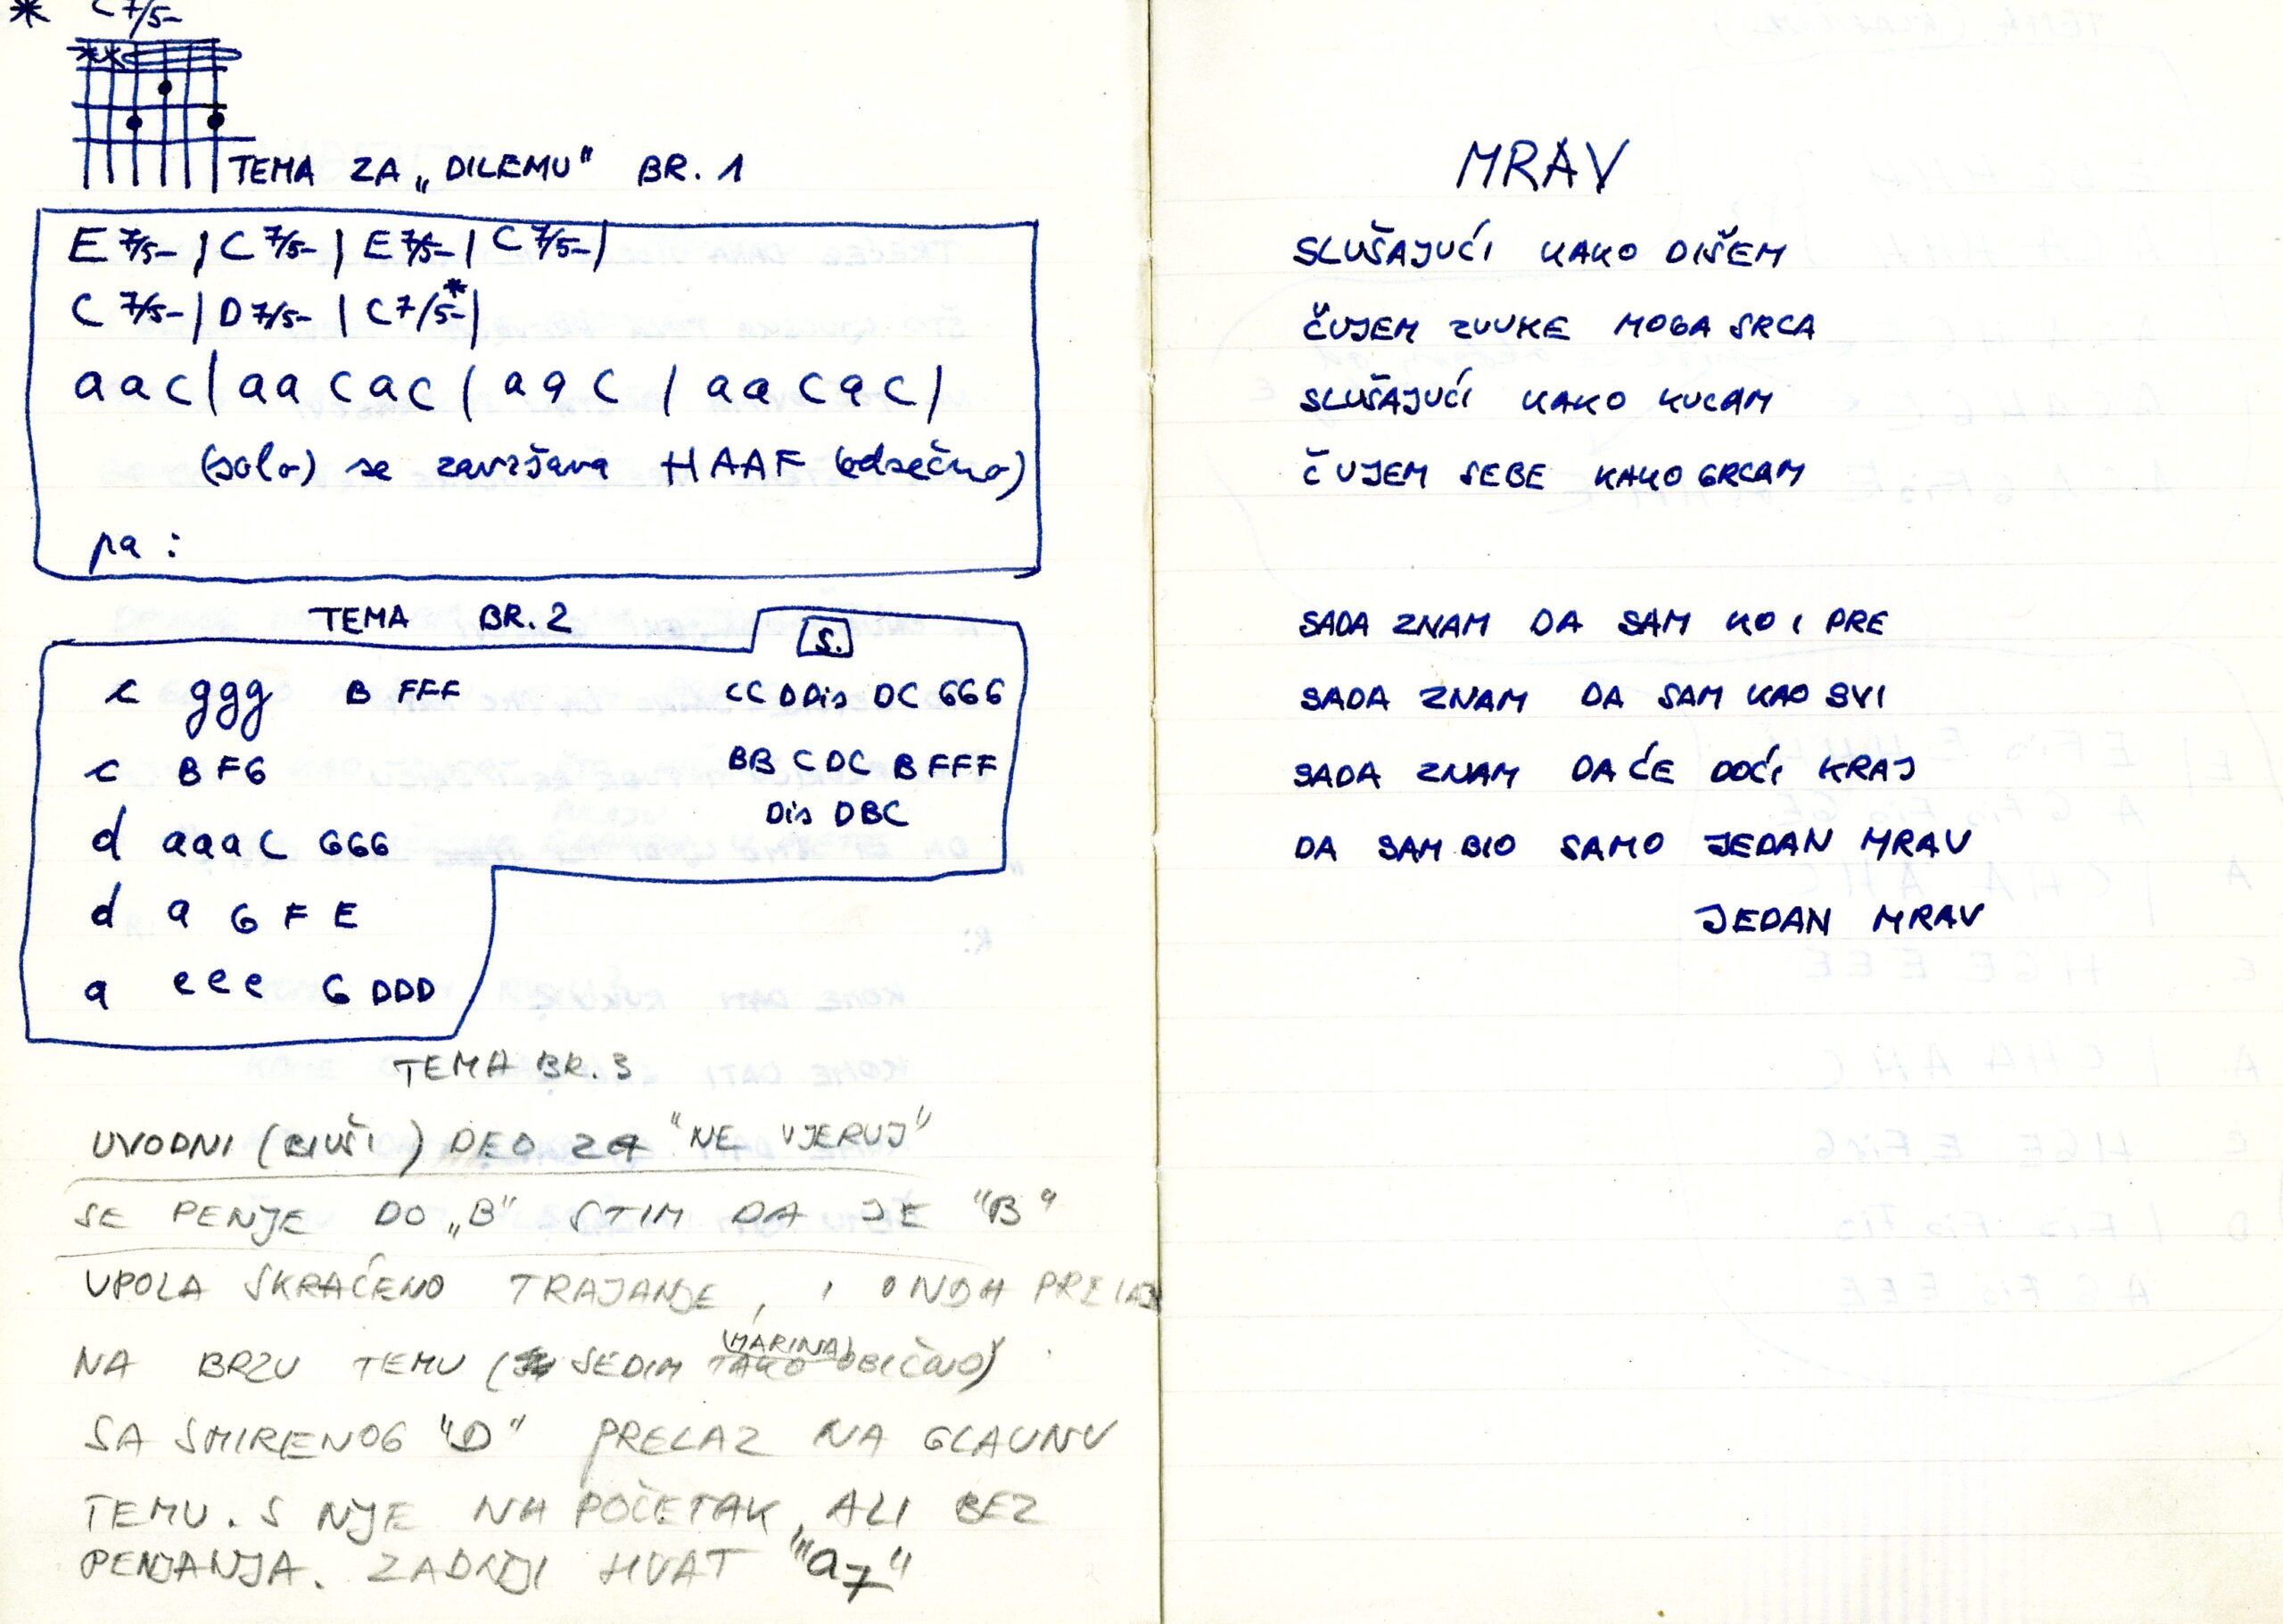 * C7/5-
TEMA ZA „DILEMU" BR. 1
E 7/5- | C 7/5- | E 7/5- | C 7/5- |
C 7/5- | D 7/5- | C7/5-* |
a a C | a a C a C | a a C | a a C a C |
(solo) se završava HAAF (odsečno)
pa :
TEMA BR. 2
S.
c ggg B FFF CC D Dis DC GGG
c B F G BB C DC B FFF
Dis DBC
d a a a C GGG
d a G F E
a e e e G DDD
TEMA BR. 3
UVODNI (BIVŠI) DEO ZA "NE VJERUJ"
SE PENJE DO „B" STIM DA JE "B"
UPOLA SKRAĆENO TRAJANJE, I ONDA
NA BRZU TEMU (SEDIM TAKO OBIČNO)
(MARINA)
SA SMIRENOG "D" PRELAZ NA GLAVNU
TEMU. S NJE NA POČETAK, ALI BEZ
PENJANJA. ZADNJI HVAT "a7"
MRAV
SLUŠAJUĆI KAKO DIŠEM
ČUJEM ZVUKE MOGA SRCA
SLUŠAJUĆI KAKO KUCAM
ČUJEM SEBE KAKO GRCAM
SADA ZNAM DA SAM KO I PRE
SADA ZNAM DA SAM KAO SVI
SADA ZNAM DA ĆE DOĆI KRAJ
DA SAM BIO SAMO JEDAN MRAV
JEDAN MRAV